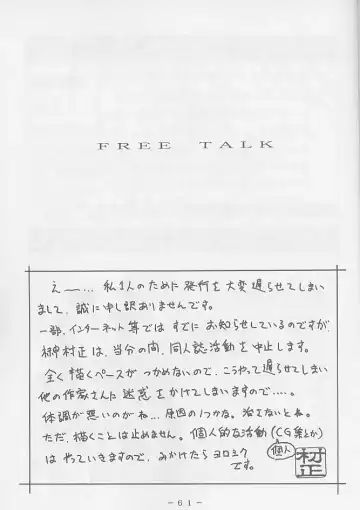 FREE TALK
えー…. 私1人のために発行を大変遅らせてしまい
まして、誠に申し訳ありませんです。
一部、インターネット等ではすでにお知らせしているのですが、
村正は、当分の間、同人誌活動を中止します。
全く描くペースがつかめないので、こうやって遅らせてしまい
他の作家さんに迷惑をかけてしまいますので…..
体調が悪いのがね…原因の1つかな。治さないとね。
ただ、描くことは止めません。個人的な活動(CG集とか)
はやっていきますので、みかけたらヨロシク
です。
個人
村正
-61-